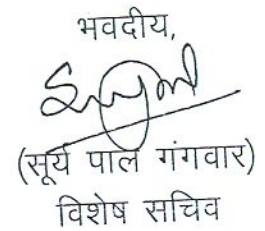 भवदीय,
(सूर्य पाल गंगवार)
विशेष सचिव